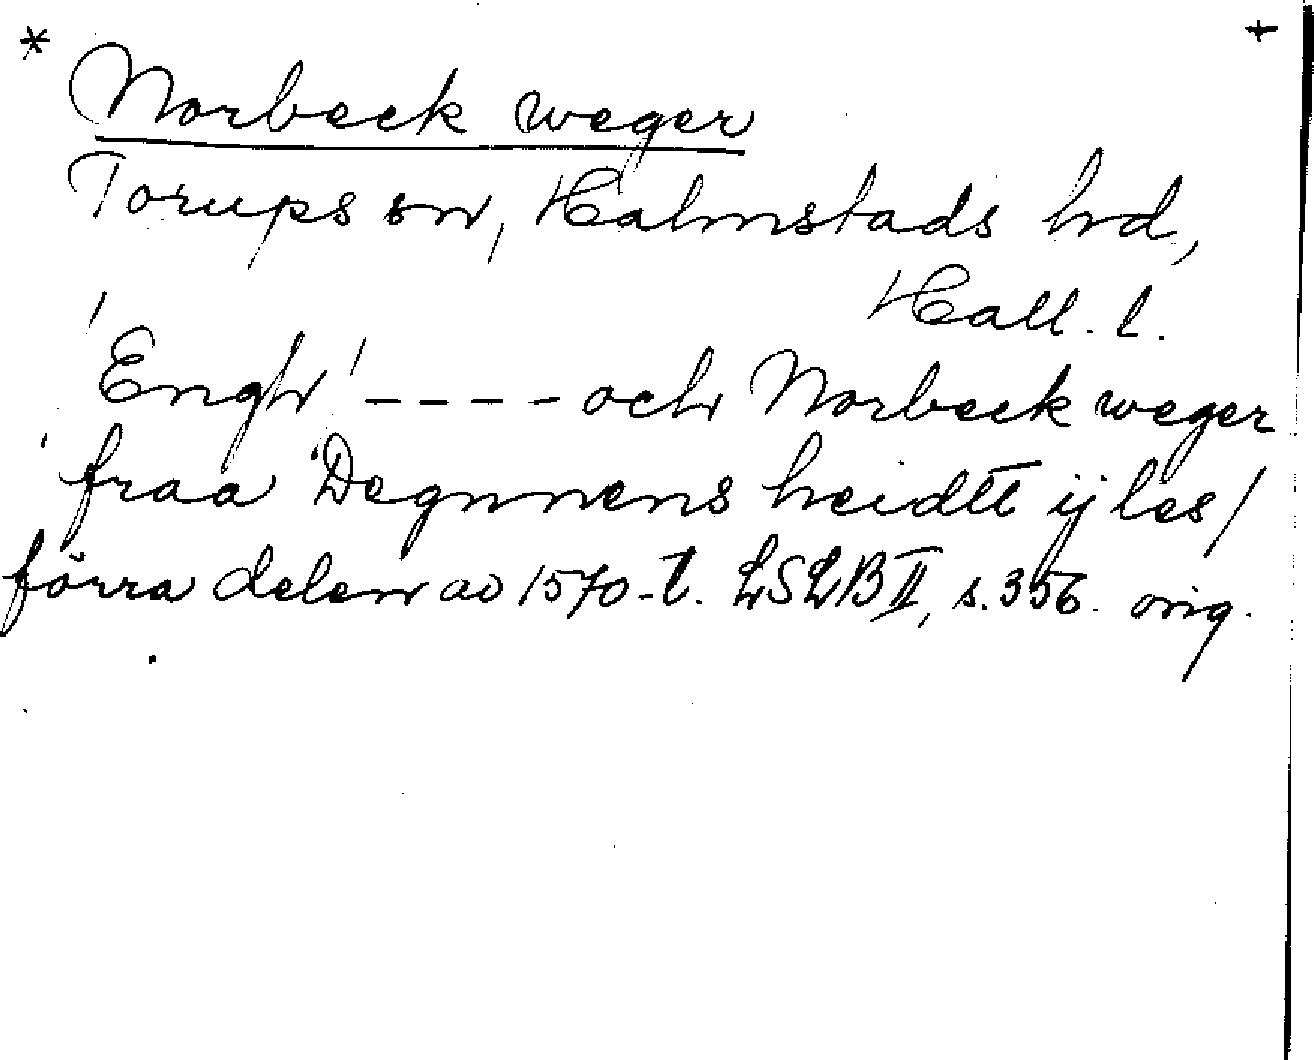 * Norbeck weger +
Torups sn, Halmstads hd,
Hall. l.
'Engh' - - - - och Norbeck weger
fraa Degnnens heidtt ij les/
förra delen av 1570-t. LSLB II, s. 356. orig.